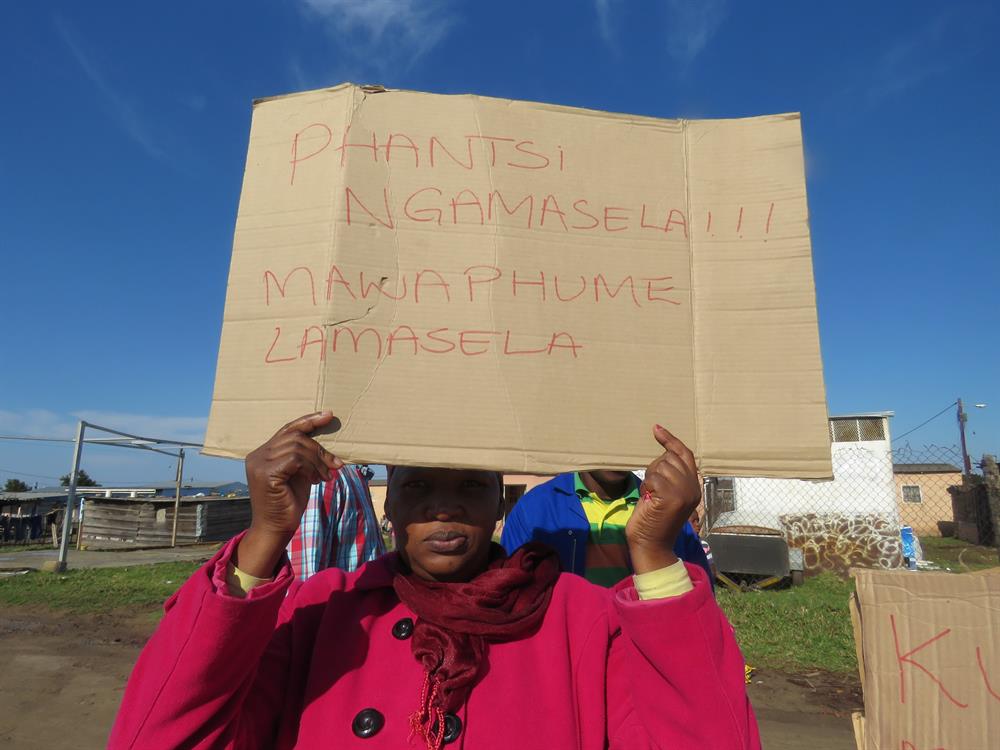 PHANTSi
NGAMASELA!!!
MAWAPHUME
LAMASELA